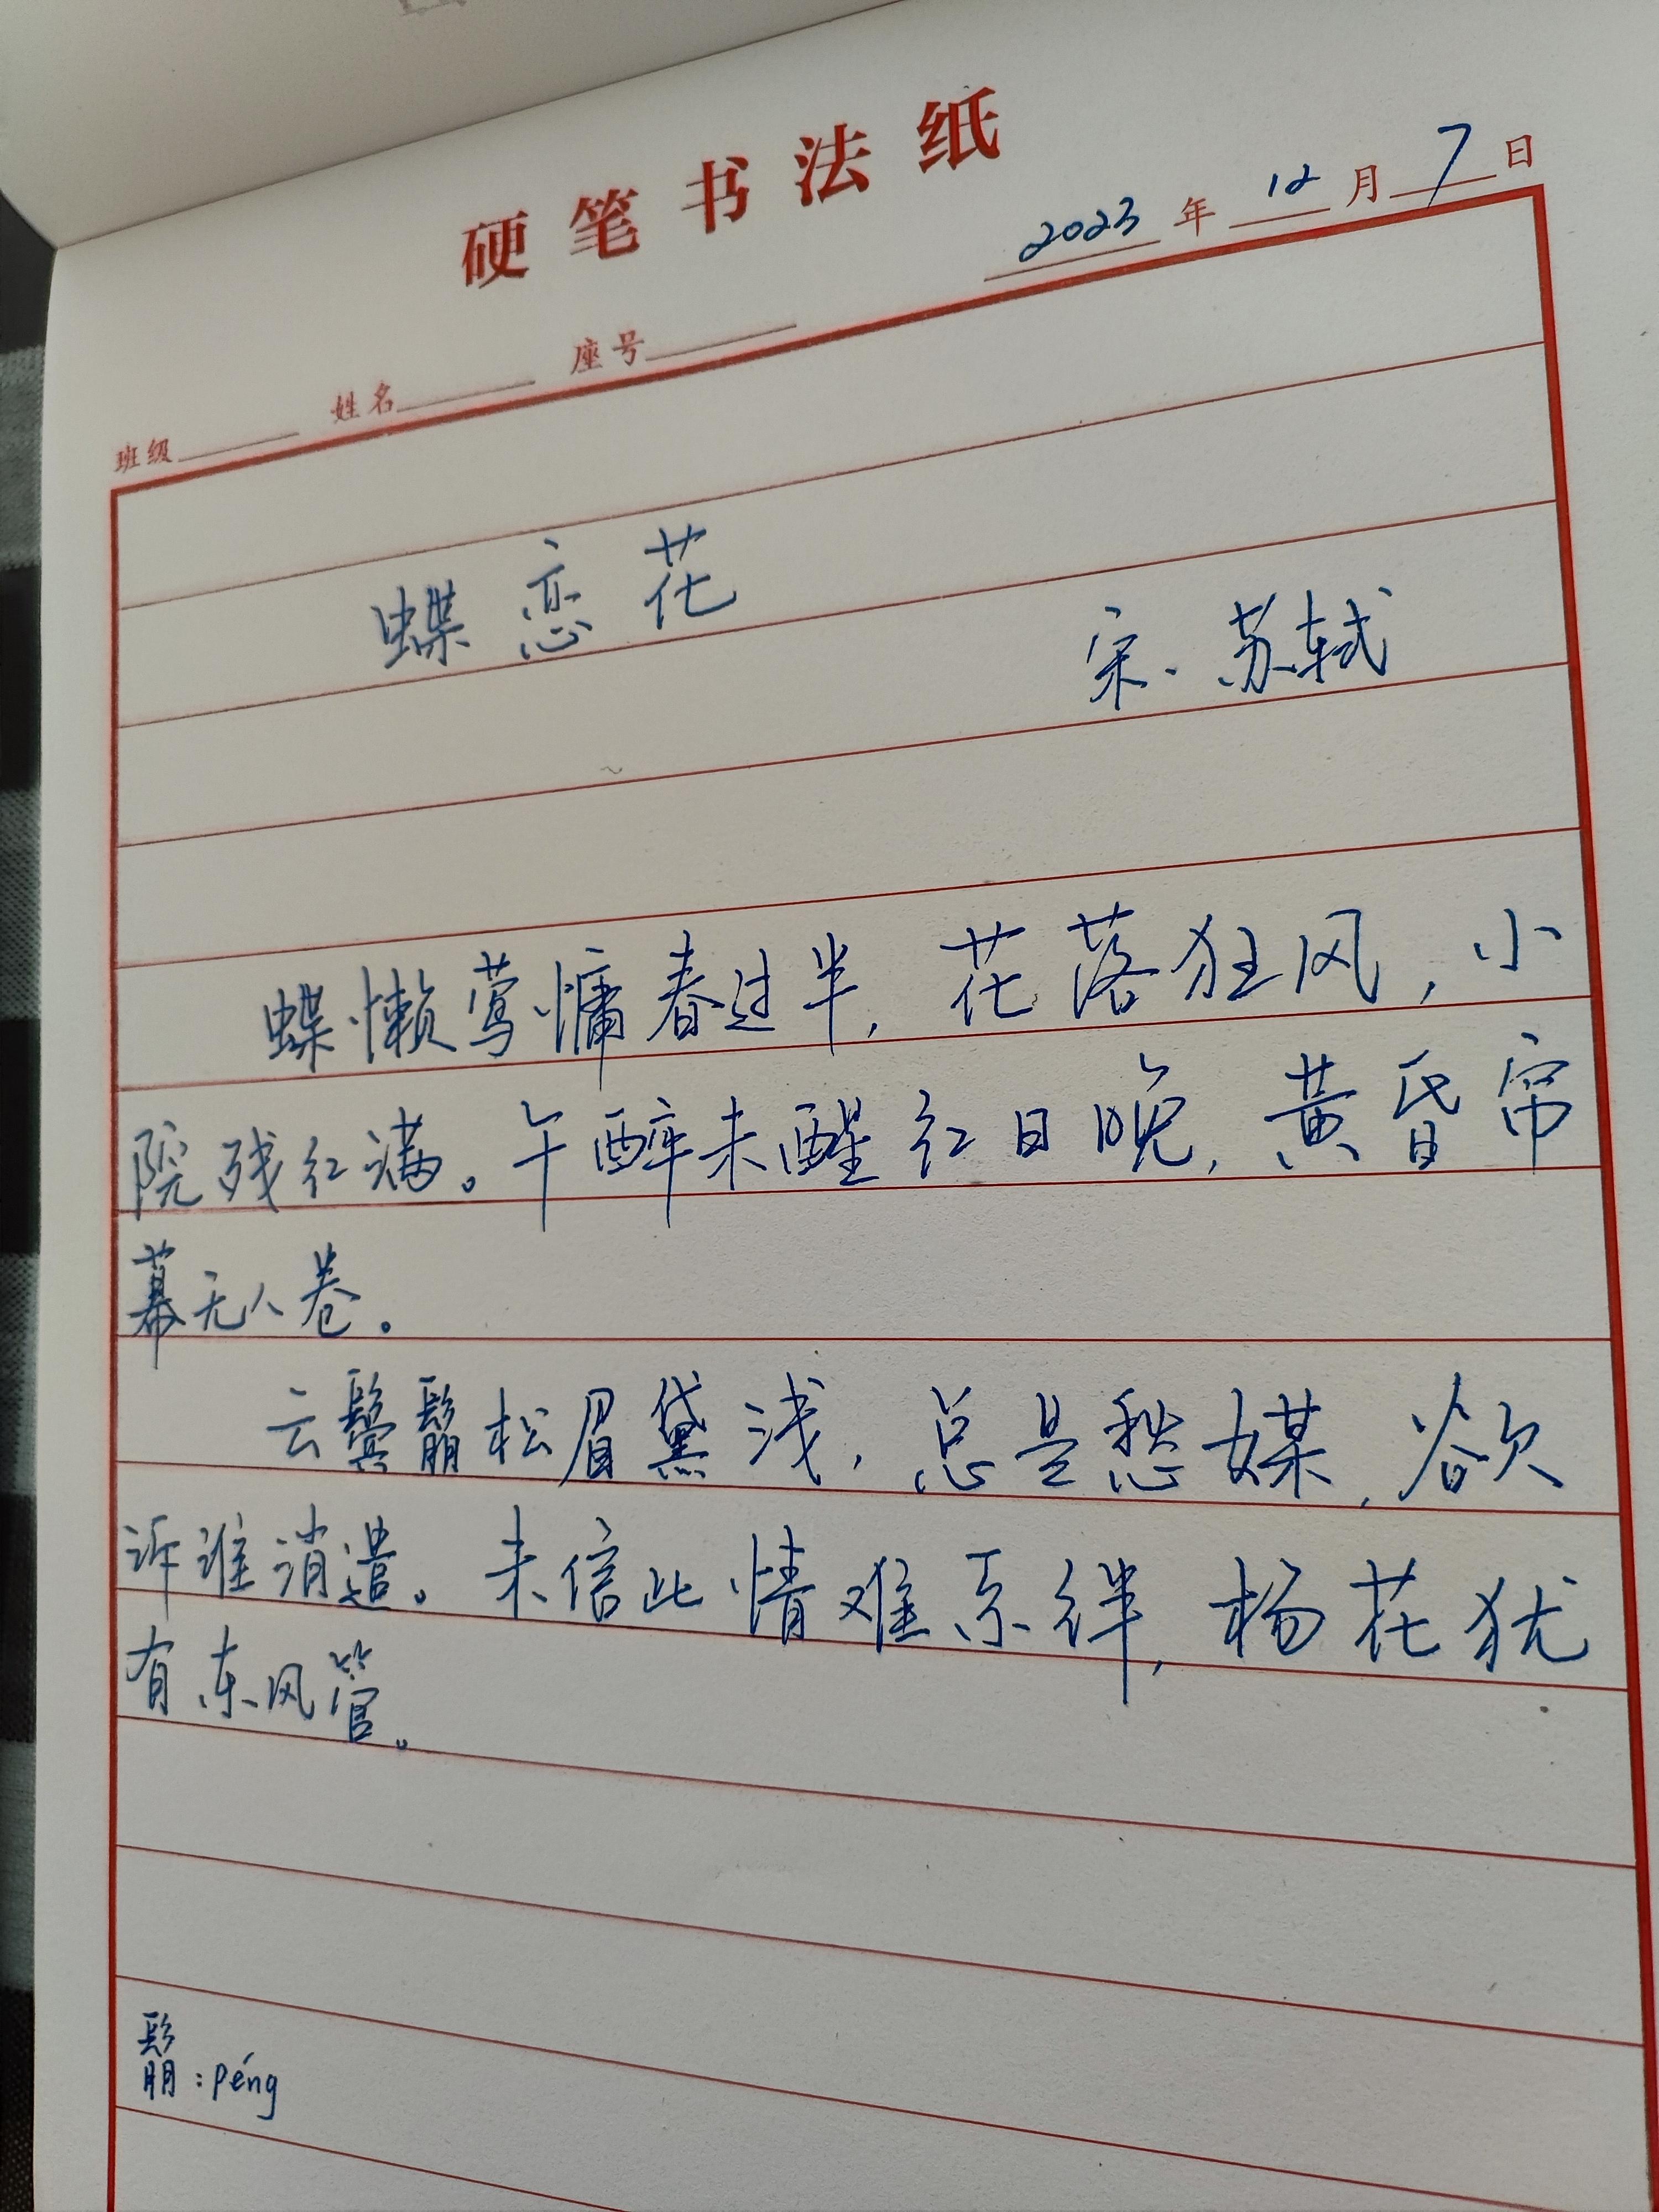 硬笔书法纸
2023年12月7日
班级 姓名 座号
蝶恋花
宋·苏轼
蝶懒莺慵春过半,花落狂风,小
院残红满。午醉未醒红日晚,黄昏帘
幕无人卷。
云鬓鬅松眉黛浅,总是愁媒,欲
诉谁消遣。未信此情难系绊,杨花犹
有东风管。
鬅:péng